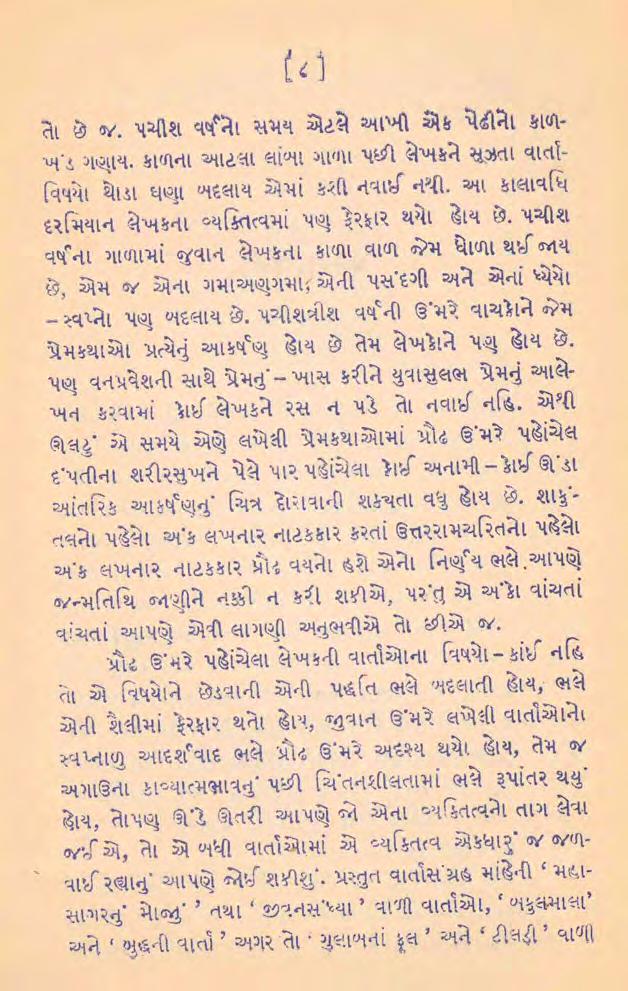 [૮]
તો છે જ. પચીશ વર્ષનો સમય એટલે આખી એક પેઢીનો કાળ-
ખંડ ગણાય. કાળના આટલા લાંબા ગાળા પછી લેખકને સૂઝતા વાર્તા-
વિષયો થોડા ઘણા બદલાય એમાં કશી નવાઈ નથી. આ કાલાવધિ
દરમિયાન લેખકના વ્યક્તિત્વમાં પણ ફેરફાર થયો હોય છે. પચીશ
વર્ષના ગાળામાં જુવાન લેખકના કાળા વાળ જેમ ધોળા થઈ જાય
છે, એમ જ એના ગમાઅણગમા; એની પસંદગી અને એનાં ધ્યેયો
– સ્વપ્નો પણ બદલાય છે. પચીશત્રીશ વર્ષની ઉંમરે વાચકોને જેમ
પ્રેમકથાઓ પ્રત્યેનું આકર્ષણ હોય છે તેમ લેખકોને પણ હોય છે.
પણ વનપ્રવેશની સાથે પ્રેમનું – ખાસ કરીને યુવાસુલભ પ્રેમનું આલે-
ખન કરવામાં કોઈ લેખકને રસ ન પડે તો નવાઈ નહિ. એથી
ઊલટું એ સમયે એણે લખેલી પ્રેમકથાઓમાં પ્રૌઢ ઉંમરે પહોંચેલ
દંપતીના શરીરસુખને પેલે પાર પહોંચેલા કોઈ અનામી – કોઈ ઊંડા
આંતરિક આકર્ષણનું ચિત્ર દોરાવાની શક્યતા વધુ હોય છે. શાકું-
તલનો પહેલો અંક લખનાર નાટકકાર કરતાં ઉત્તરરામચરિતનો પહેલો
અંક લખનાર નાટકકાર પ્રૌઢ વયનો હશે એનો નિર્ણય ભલે આપણે
જન્મતિથિ જાણીને નક્કી ન કરી શકીએ, પરંતુ એ અંકો વાંચતાં
વાંચતાં આપણે એવી લાગણી અનુભવીએ તો છીએ જ.
પ્રૌઢ ઉંમરે પહોંચેલા લેખકની વાર્તાઓના વિષયો – કાંઈ નહિ
તો એ વિષયોને છેડવાની એની પદ્ધતિ ભલે બદલાતી હોય, ભલે
એની શૈલીમાં ફેરફાર થતો હોય, જુવાન ઉંમરે લખેલી વાર્તાઓનો
સ્વપ્નાળુ આદર્શવાદ ભલે પ્રૌઢ ઉંમરે અદશ્ય થયો હોય, તેમ જ
અગાઉના કાવ્યાત્મભાવનું પછી ચિંતનશીલતામાં ભલે રૂપાંતર થયું
હોય, તોપણ ઊંડે ઊતરી આપણે જો એના વ્યક્તિત્વનો તાગ લેવા
જઈએ, તો એ બધી વાર્તાઓમાં એ વ્યક્તિત્વ એકધારું જ જળ-
વાઈ રહ્યાનું આપણે જોઈ શકીશું. પ્રસ્તુત વાર્તાસંગ્રહ માંહેની ‘ મહા-
સાગરનું મોજું ’ તથા ‘ જીવનસંધ્યા ’ વાળી વાર્તાઓ, ‘ બકુલમાલા’
અને ‘ બુદ્ધની વાર્તા ’ અગર તો ‘ ગુલાબનાં ફૂલ ’ અને ‘ ટીલડી ’ વાળી